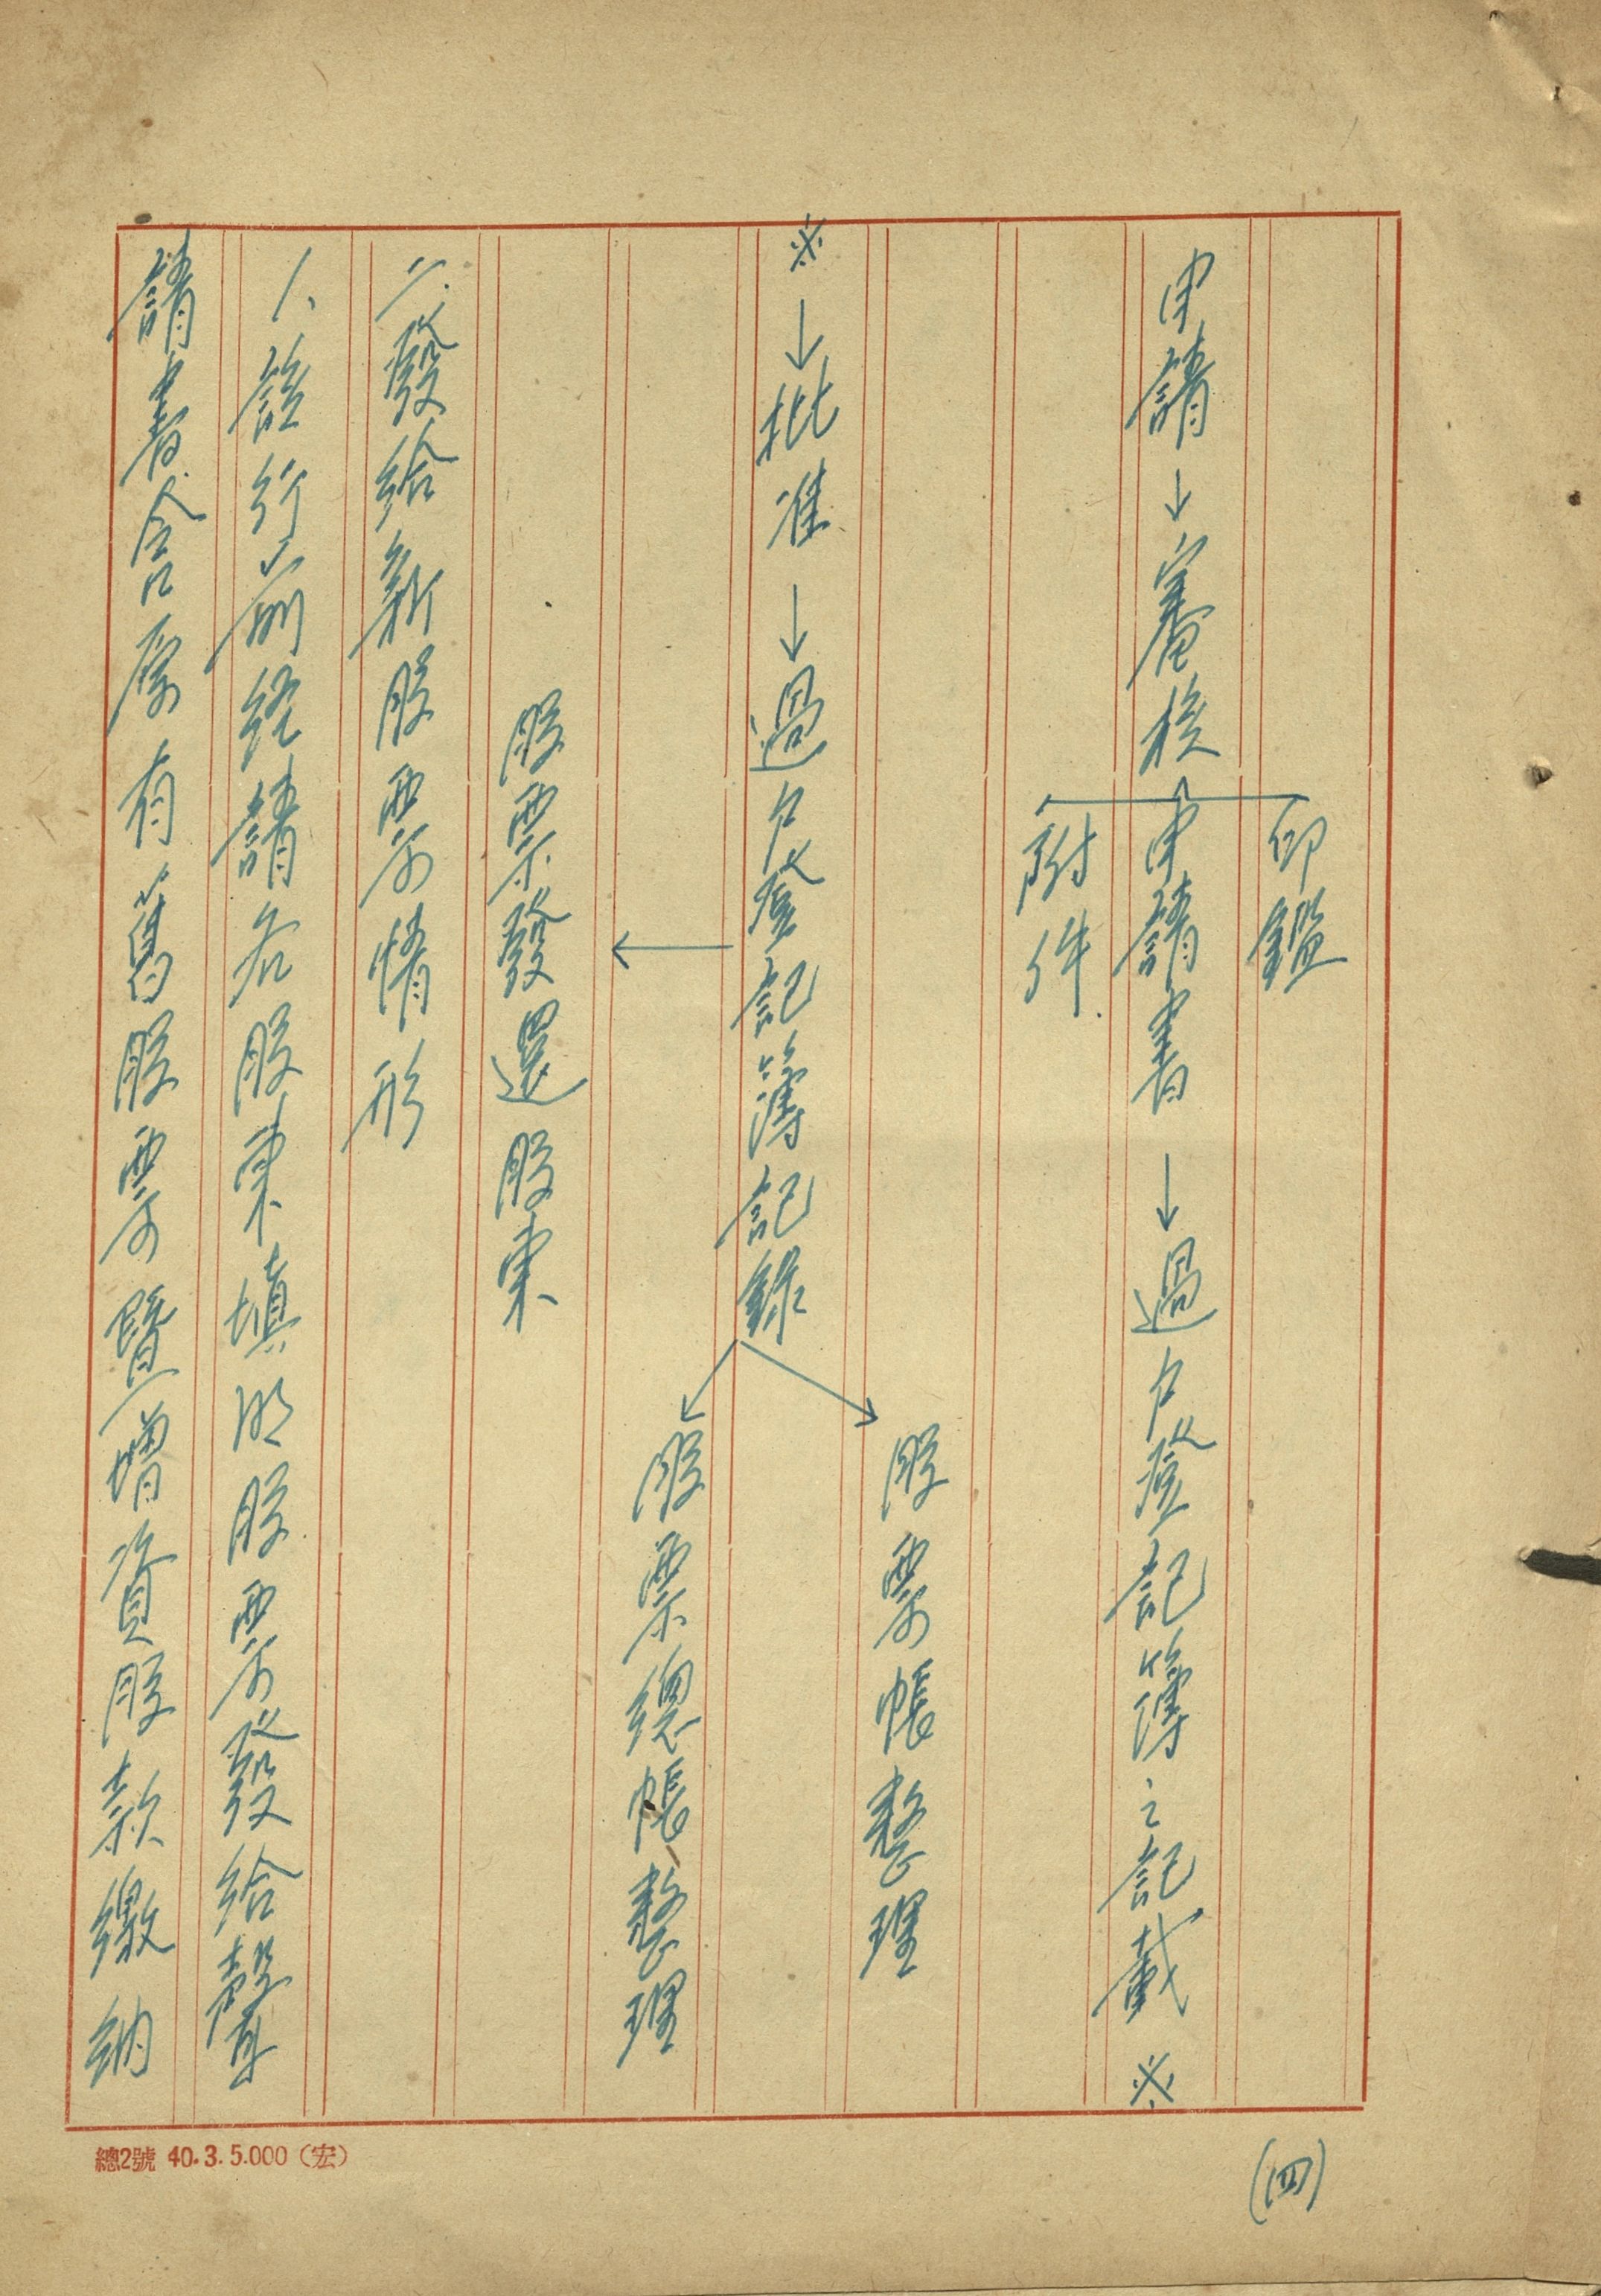 印鑑
申請→審核 申請書→過戶登記簿之記載※
附件
股票帳整理
※→批准→過戶登記簿記錄
股票總帳整理
股票發還股東
二、發給新股票情形
1、該行前經請各股東填明股票發給聲
請書含原有舊股票暨增資股款繳納
(四)
總2號 40.3.5.000(宏)